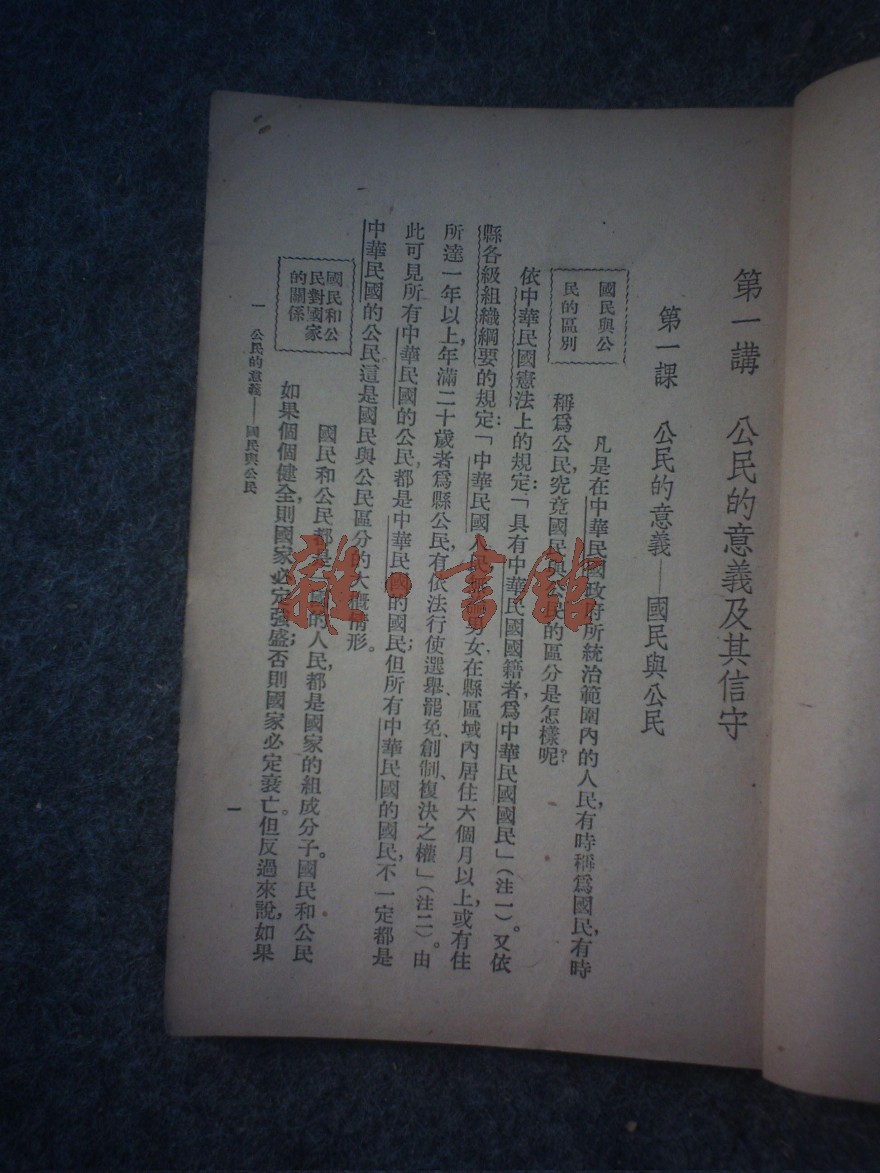 第一講　公民的意義及其信守
第一課　公民的意義——國民與公民
國民與公
民的區別
凡是在中華民國政府所統治範圍內的人民，有時稱爲國民，有時
稱爲公民，究竟國民與公民的區分是怎樣呢？
依中華民國憲法上的規定：「具有中華民國國籍者，爲中華民國國民」（注一）。又依
縣各級組織綱要的規定：「中華民國人民無論男女，在縣區域內居住六個月以上，或有住
所達一年以上，年滿二十歲者爲縣公民，有依法行使選舉、罷免、創制、複決之權」（注二）。由
此可見所有中華民國的公民，都是中華民國的國民；但所有中華民國的國民，不一定都是
中華民國的公民這是國民與公民區分的大概情形。
國民和公
民對國家
的關係
國民和公民都是國的人民，都是國家的組成分子。國民和公民
如果個個健全，則國家必定強盛；否則國家必定衰亡。但反過來說，如果
一　公民的意義——國民與公民
一
雜·書館